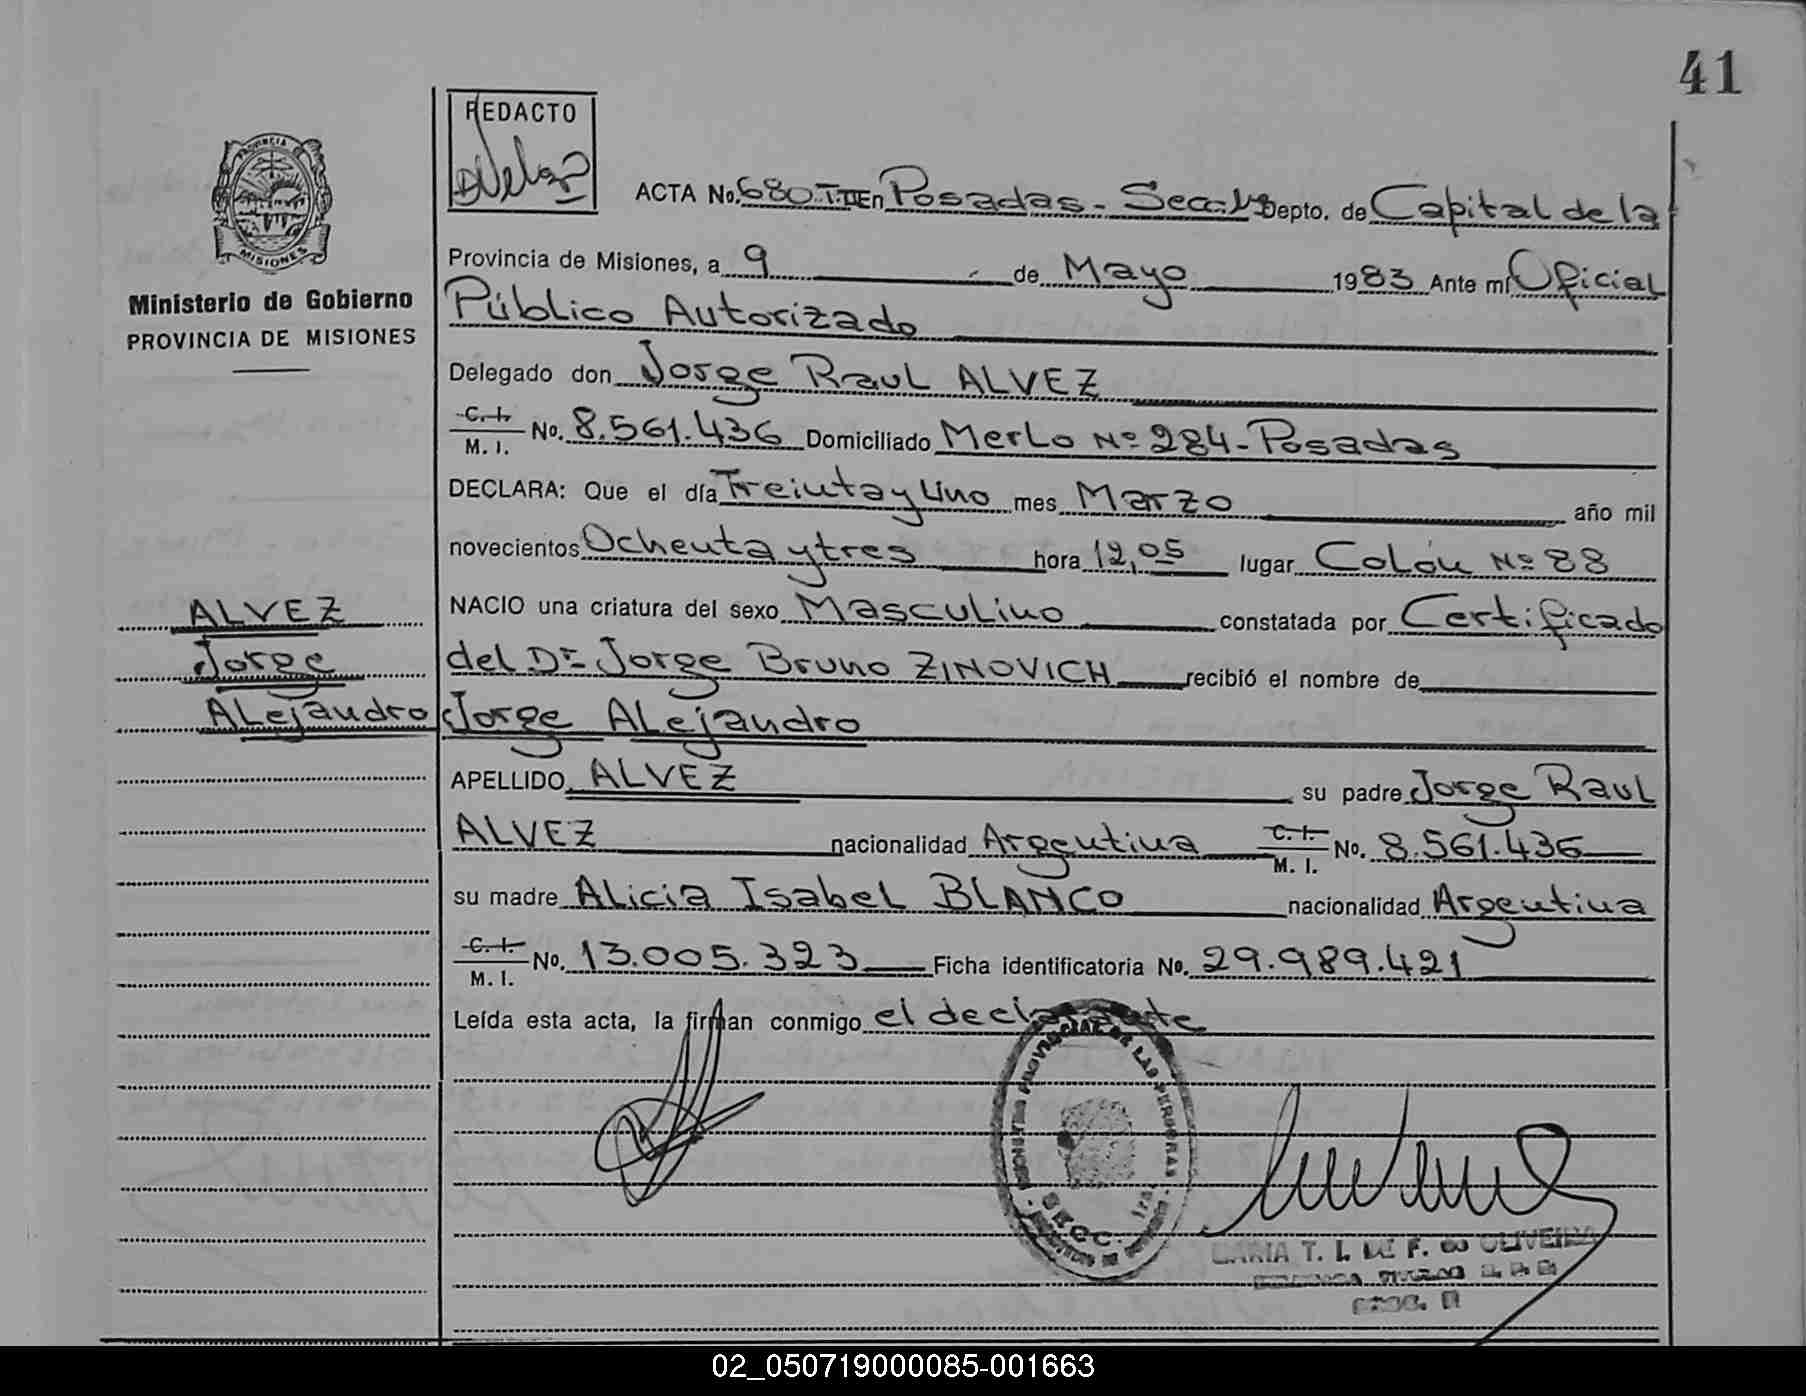 41
REDACTO
ACTA No. 680 T·III En Posadas - Secc. 1ª Depto. de Capital de la
PROVINCIA DE
MISIONES
Ministerio de Gobierno
PROVINCIA DE MISIONES
Provincia de Misiones, a 9 de Mayo 1983 Ante mí Oficial
Público Autorizado
Delegado don Jorge Raul ALVEZ
C. I.
M. I. No. 8.561.436 Domiciliado Merlo Nº 284 - Posadas
DECLARA: Que el día Treinta y Uno mes Marzo año mil
novecientos Ochenta y tres hora 12,05 lugar Colón Nº 88
NACIO una criatura del sexo Masculino constatada por Certificado
del Dr. Jorge Bruno ZINOVICH recibió el nombre de
Jorge Alejandro
ALVEZ
Jorge
Alejandro
APELLIDO ALVEZ su padre Jorge Raul
ALVEZ nacionalidad Argentina C. I.
M. I. No. 8.561.436
su madre Alicia Isabel BLANCO nacionalidad Argentina
C. I.
M. I. No. 13.005.323 Ficha identificatoria No. 29.989.421
Leída esta acta, la firman conmigo el declarante
PROVINCIAL DE LAS PERSONAS
SECC.
MARIA T. I. DE F. DE OLIVEIRA
02_050719000085-001663